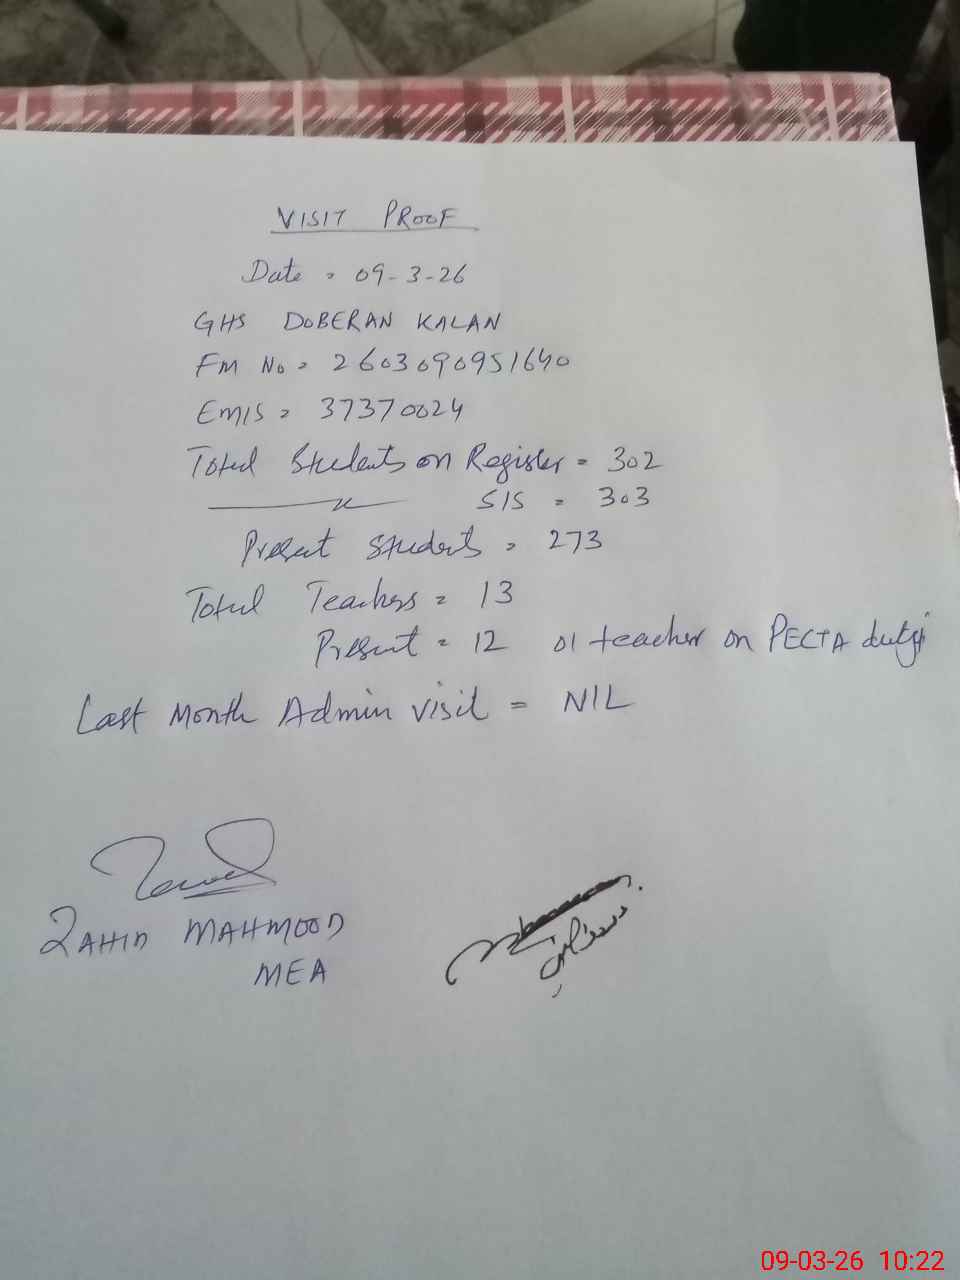 VISIT PROOF
Date = 09-3-26
GHS DOBERAN KALAN
FM No = 2603090951640
EMIS = 37370024
Total Students on Register = 302
SIS = 303
Present Students = 273
Total Teachers = 13
Present = 12 01 teacher on PECTA duty
Last Month Admin visit = NIL
ZAHID MAHMOOD
MEA
09-03-26 10:22